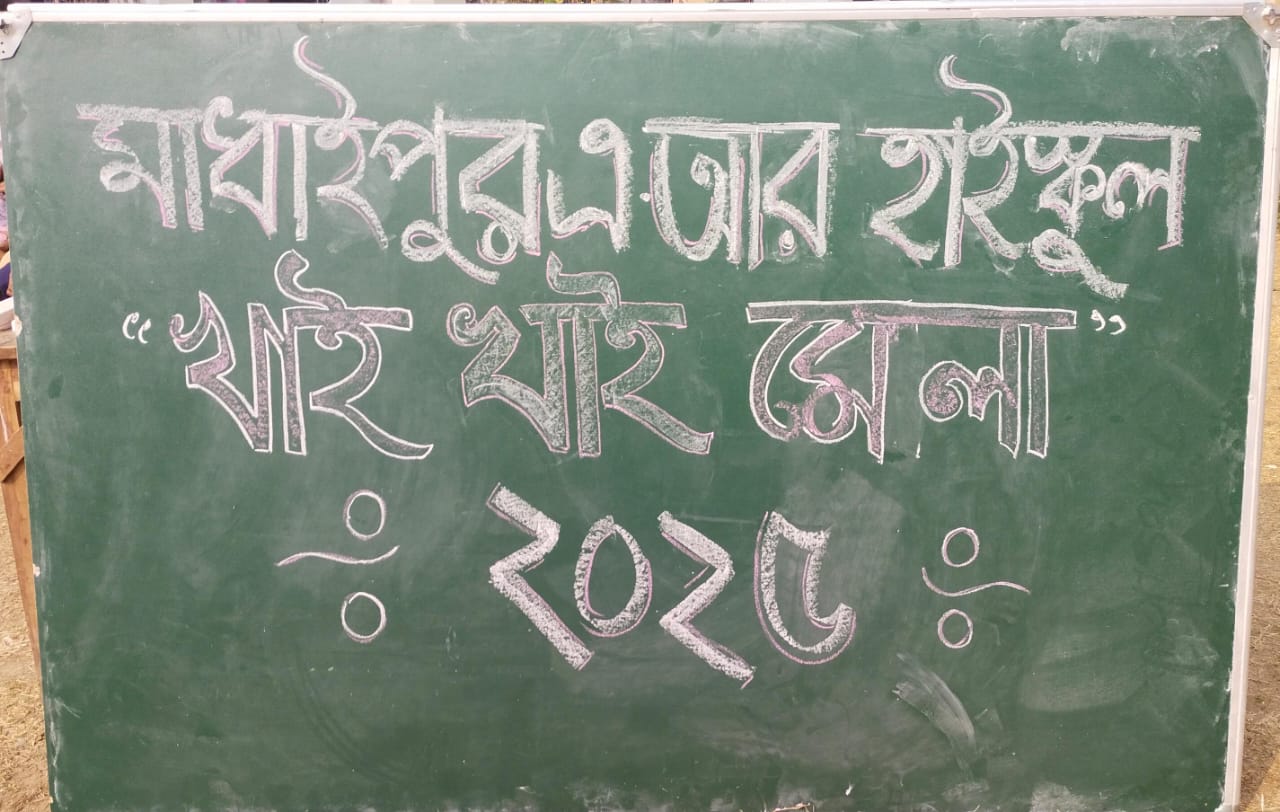 মাধাইপুর এ.আর হাইস্কুল
“খাই খাই মেলা”
২০২৫